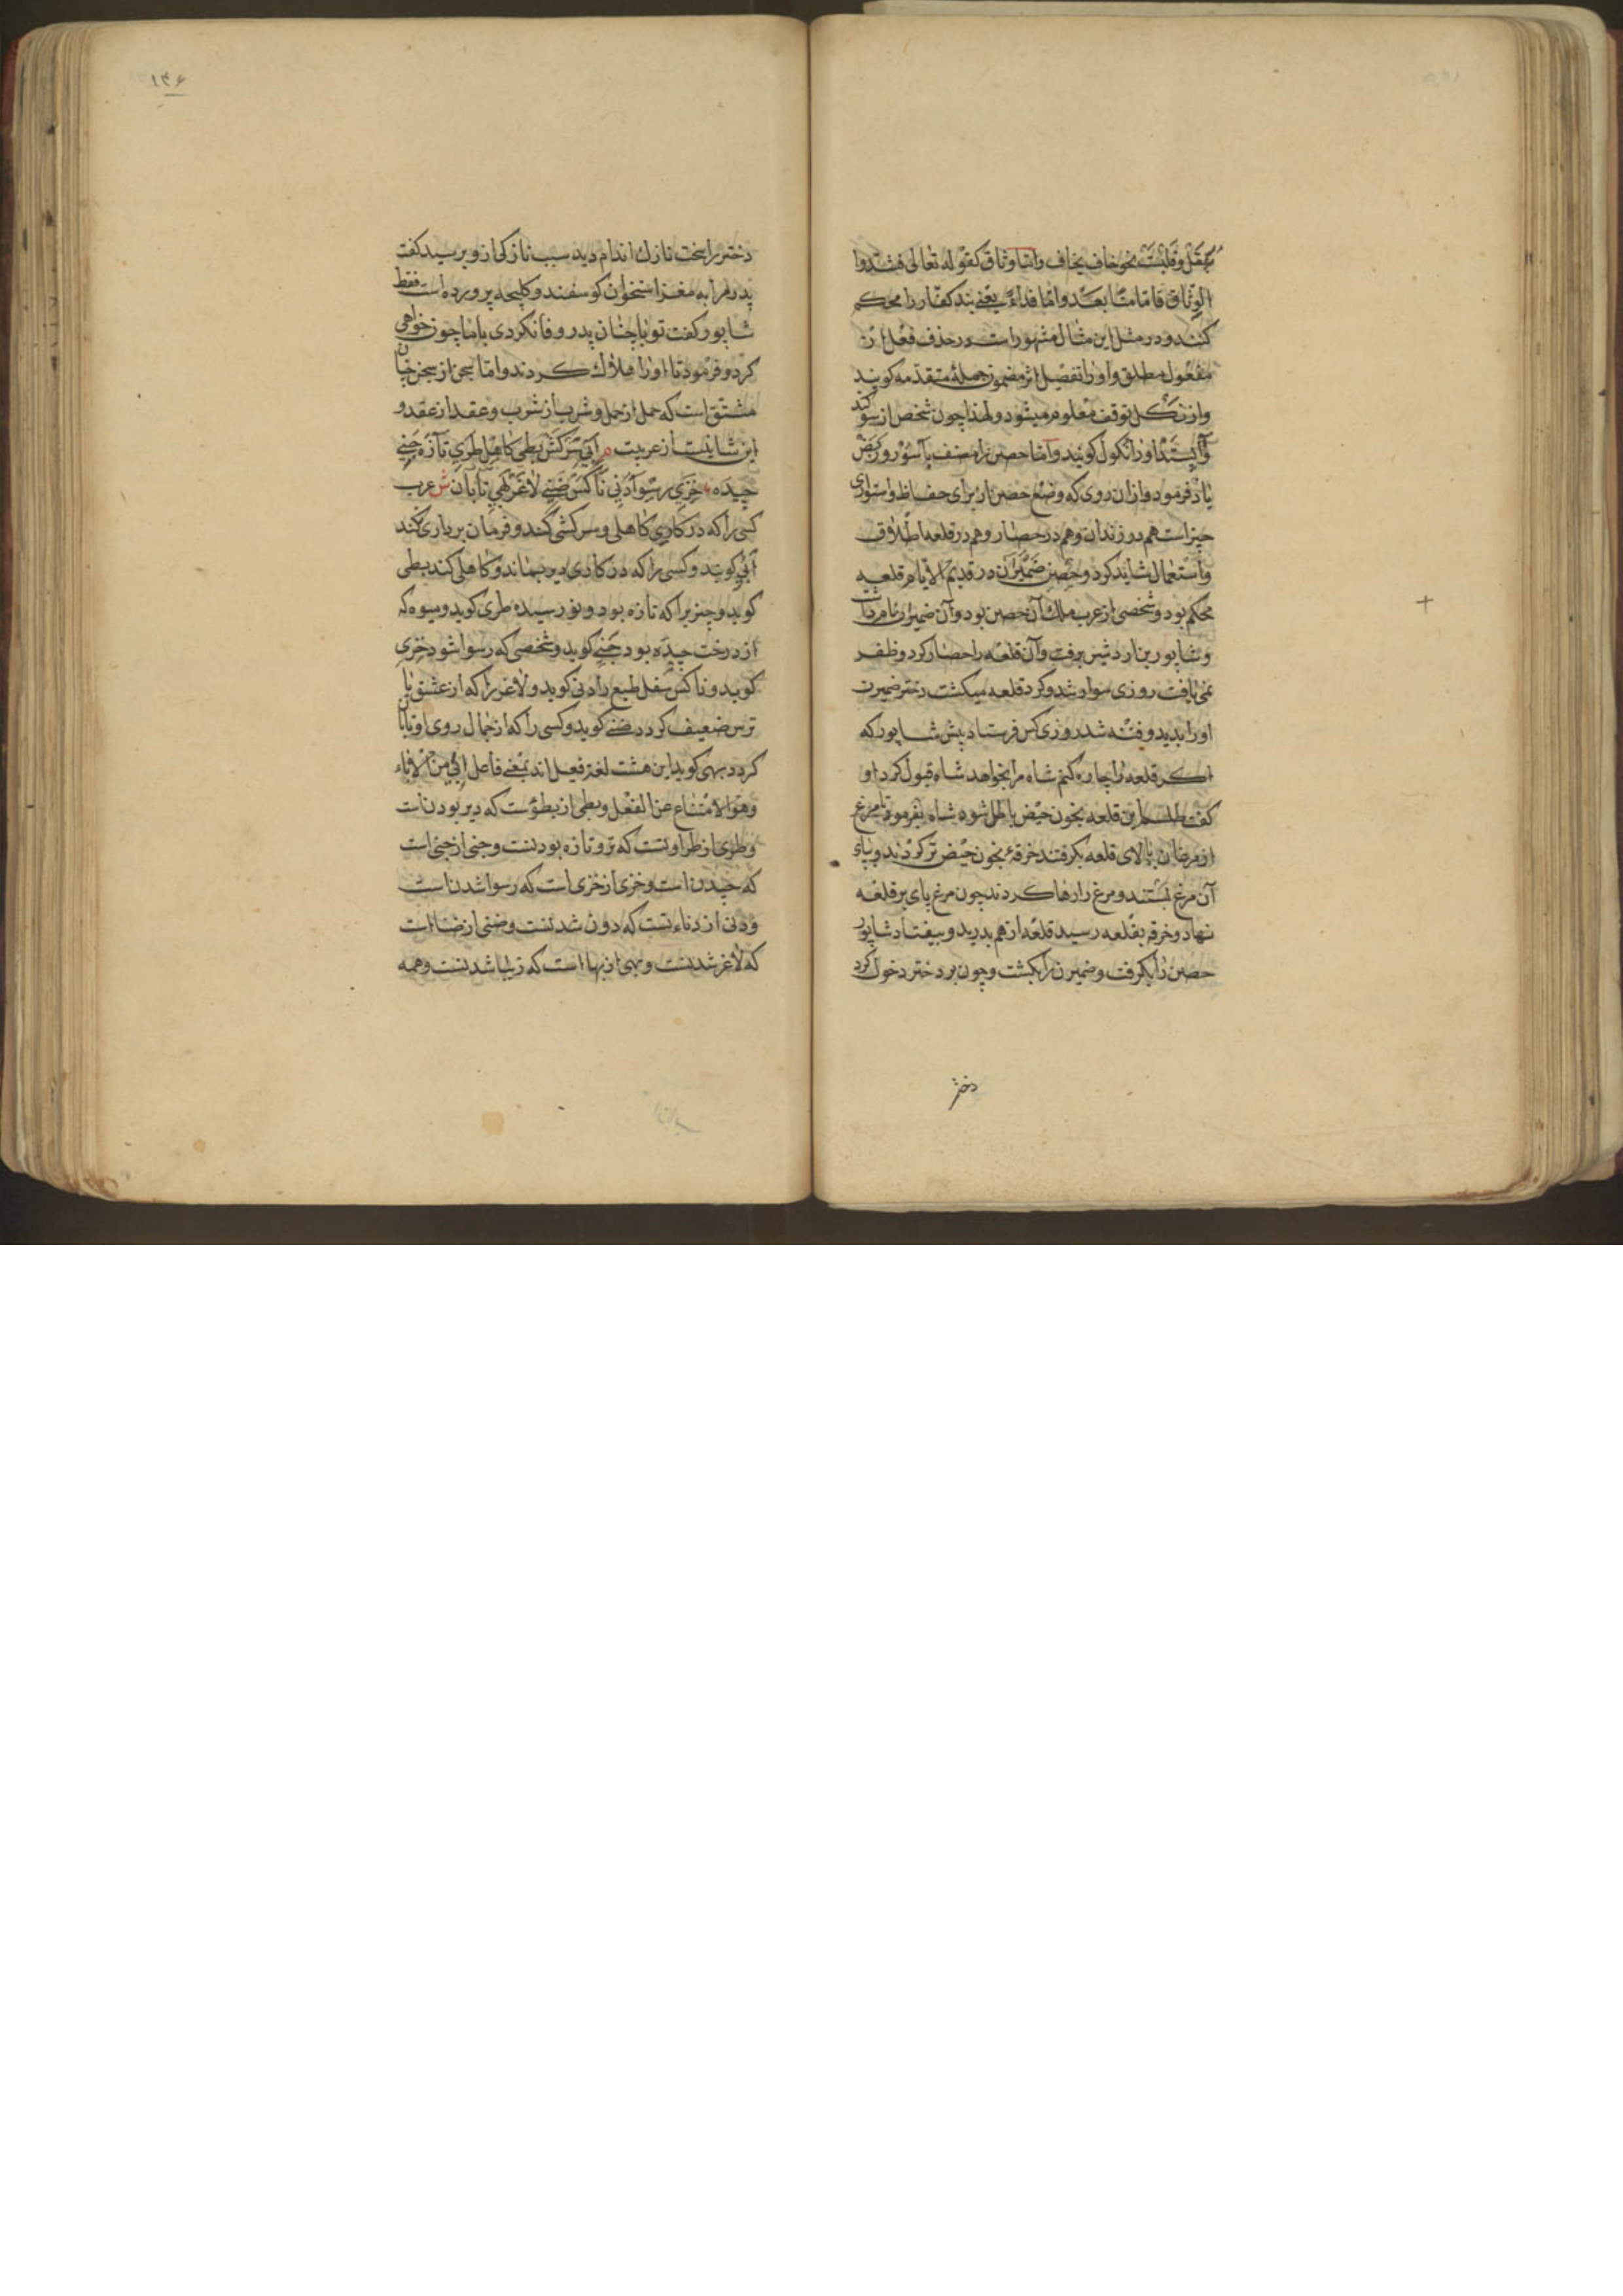 نحو خاف یخاف واما وثاق کقوله تعالی فشدّوا
الوثاق فامّا منّا بعد وامّا فداءً یعنی بند کفار را محکم
کنند و در مثل این مثال مشهور است در حذف فعل از
مفعول مطلق واو را تفصیل اثر مضمون جملۀ متقدمه کویند
معلوم میشود ولهذا چون شخص از سوکند
باز ایستد او را نکول کویند واما حصن را مصنف با سور و ربض
یاد فرمود و ازان روی که وضع حصن از برای حفاظ و استواری
چیز است هم در زندان و هم در حصار و هم در قلعه اطلاق
واستعمال شاید کرد و حصن ضمیران در قدیم الایام قلعۀ
محکم بود و شخصی از عرب ملك آن حصن بود و آن ضمیران نام
وشاپور بن اردشیر برفت وآن قلعه را حصار کرد و ظفر
نمی یافت روزی سوار شد و کرد قلعه میکشت دختر ضمیرن
او را بدید و فتنه شد روزی کس فرستاد پیش شاپور که
اکر قلعه را چاره کنم شاه مرا بخواهد شاه قبول کرد او
کفت طلسم این قلعه بخون حیض باطل شود شاه بفرمود تا مرغ
از مرغان بالای قلعه بکرفتند خرقۀ بخون حیض تر کردند و بپای
آن مرغ بستند و مرغ را رها کردند چون مرغ پای بر قلعه
نهاد و خرقه بقلعه رسید قلعه از هم بدرید و بیفتاد شاپور
حصن را بکرفت و ضمیرن را بکشت و چون بر دختر دخول کرد
دختر
۱۳۶
دختر را سخت نازك اندام دید سبب نازکی ازو پرسید کفت
پدر مرا به مغز استخوان کوسفند و کلیجه پرورده است فقط
شاپور کفت تو با چنان پدر وفا نکردی با ما چون خواهی
کرد و فرمود تا او را هلاك کردند واما سجن از سجن چنان
مشتق است که حمل از حمل وشرب از شرب وعقد از عقد و
این شایعست از عربیت م ابی سرکش بطی کاهل طری تازه جنی
چیده خزی رسوا دنی ناکس ضنی لاغر بهی تابان ش عرب
کسی را که در کاری کاهلی و سرکشی کند و فرمان بر باری نکند
ابی کویند و کسی را که در کاری دیر بماند و کاهلی کند بطی
کوید و چیزیرا که تازه بود و نورسیده طری کوید و میوه که
از درخت چیده بود جنی کوید و شخصی که رسوا شود خزی
کوید و ناکس سفل طبع را دنی کوید و لاغر را که از عشق یا
ترس ضعیف کردد ضنی کوید و کسی را که از جمال روی او تابان
کردد بهی کوید این هشت لغة فعیل اند بمعنی فاعل ابی من الاباء
وهو الامتناع عن الفعل وبطی از بطؤست که دیر بودنست
وطری از طراوتست که تر و تازه بودنست وجنی از جنی است
که چیدنست وخزی از خزی است که رسوا شدنست
ودنی از دناءتست که دون شدنست وضنی از ضنا است
که لاغر شدنست وبهی از بها است که زیبا شدنست وهمه